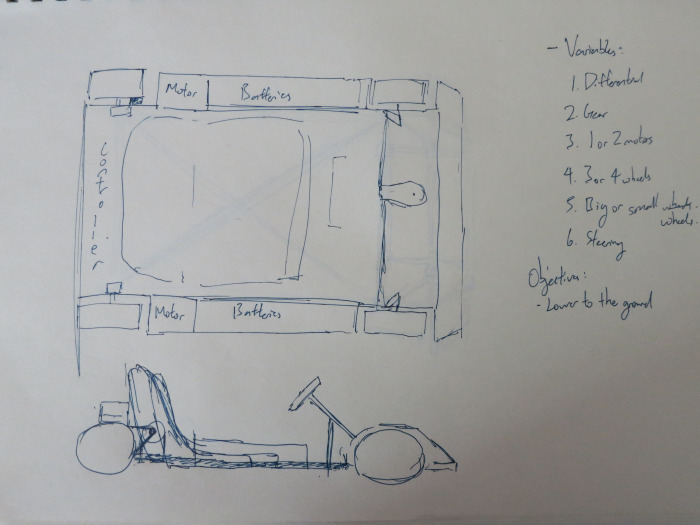 Motor Batteries
Controller
Motor Batteries
- Variables:
1. Differential
2. Gear
3. 1 or 2 motors
4. 3 or 4 wheels
5. Big or small
wheels.
6. Steering
Objectives:
- Lower to the ground